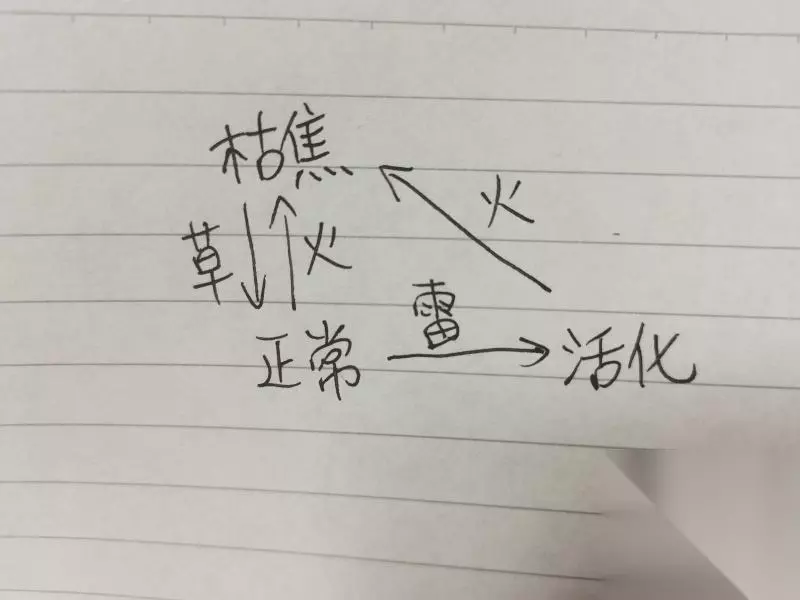 枯焦
火
草 火
雷
正常 活化